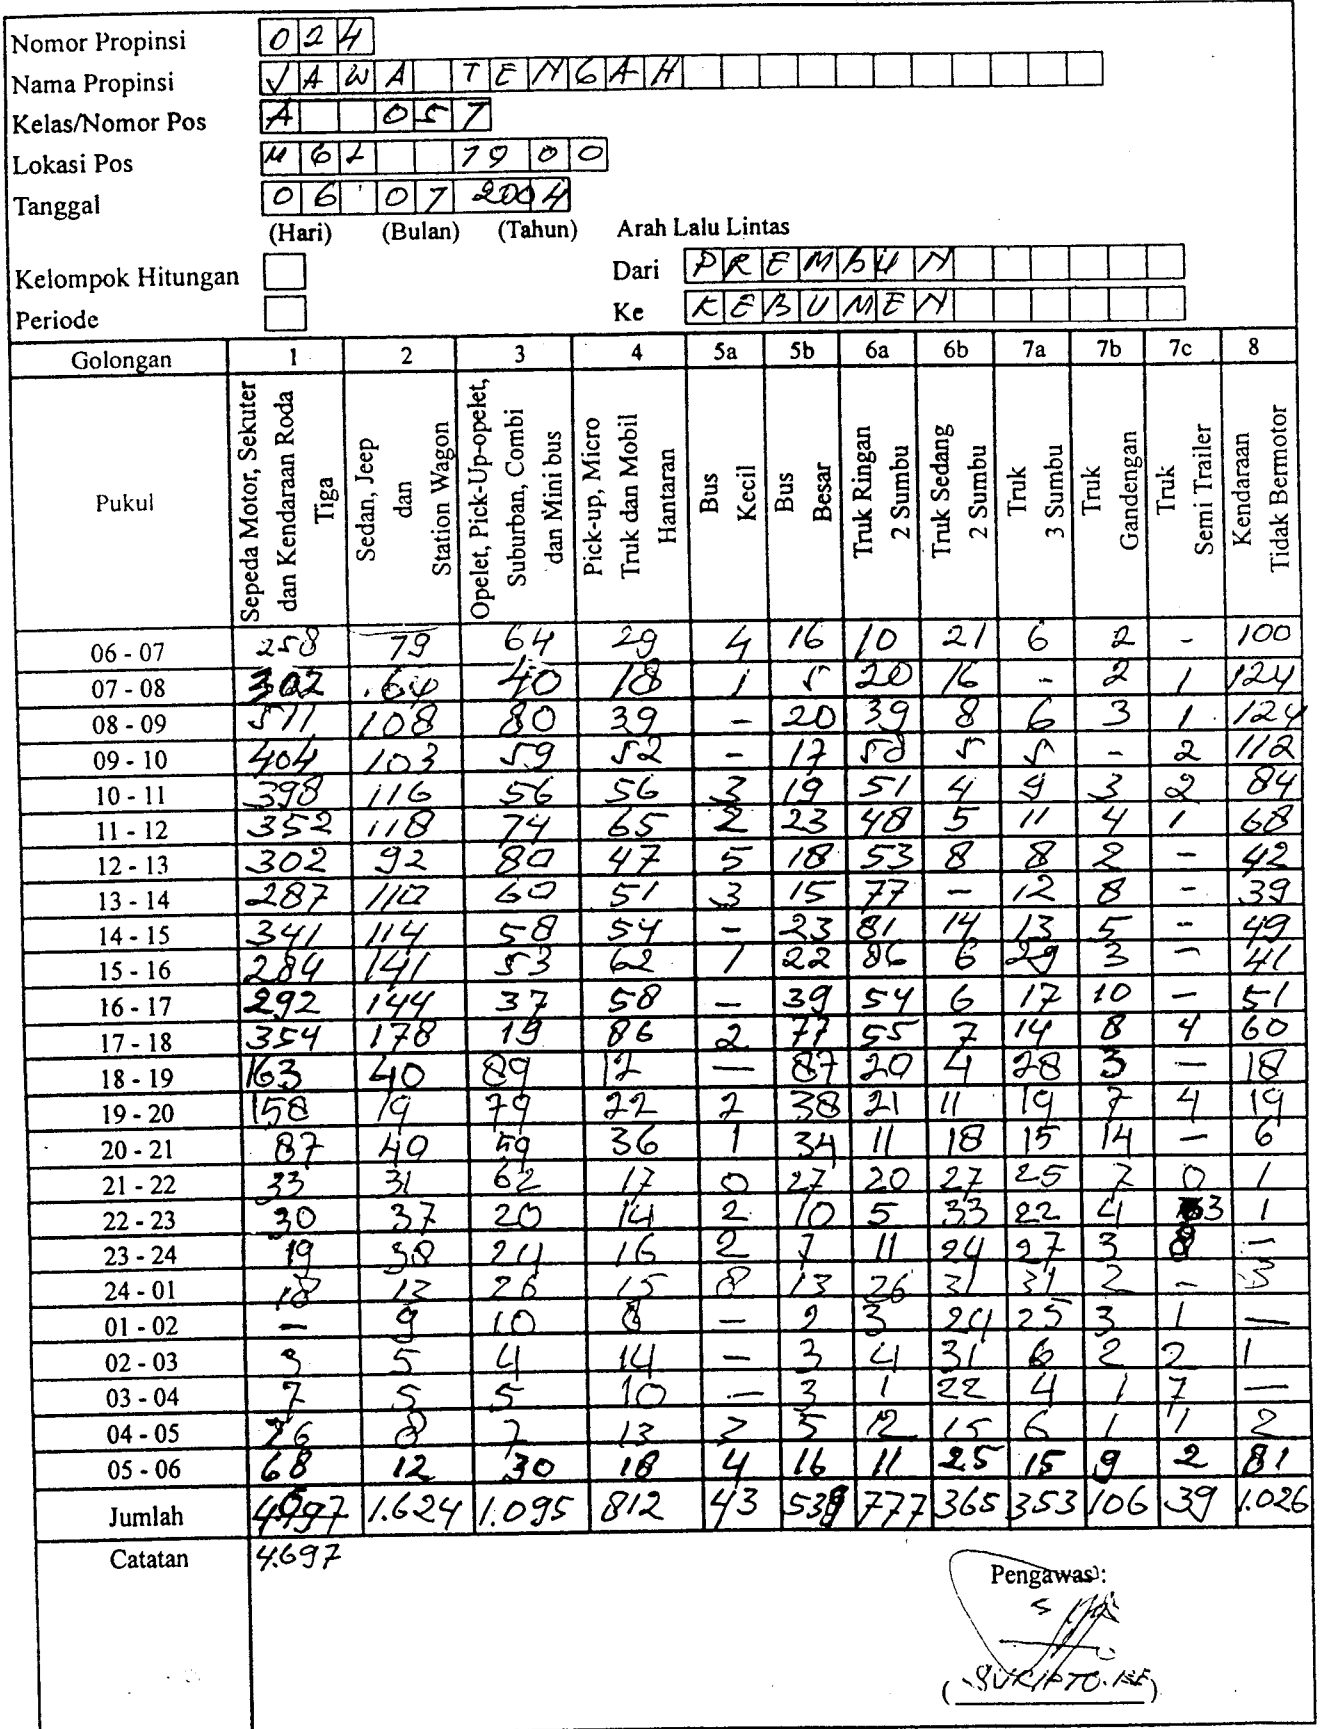 Nomor Propinsi 024
Nama Propinsi JAWA TENGAH
Kelas/Nomor Pos A 057
Lokasi Pos MGL 1900
Tanggal 06 07 2004
(Hari) (Bulan) (Tahun) Arah Lalu Lintas
Kelompok Hitungan Dari PREMBUN
Periode Ke KEBUMEN
Golongan 1 2 3 4 5a 5b 6a 6b 7a 7b 7c 8
Pukul
Sepeda Motor, Sekuter
dan Kendaraan Roda
Tiga
Sedan, Jeep
dan
Station Wagon
Opelet, Pick-Up-opelet,
Suburban, Combi
dan Mini bus
Pick-up, Micro
Truk dan Mobil
Hantaran
Bus
Kecil
Bus
Besar
Truk Ringan
2 Sumbu
Truk Sedang
2 Sumbu
Truk
3 Sumbu
Truk
Gandengan
Truk
Semi Trailer
Kendaraan
Tidak Bermotor
06 - 07 258 79 64 29 4 16 10 21 6 2 - 100
07 - 08 302 64 40 18 1 5 20 16 - 2 1 124
08 - 09 511 108 80 39 - 20 39 8 6 3 1 124
09 - 10 404 103 59 52 - 17 58 5 5 - 2 112
10 - 11 398 116 56 56 3 19 51 4 9 3 2 84
11 - 12 352 118 74 65 2 23 48 5 11 4 1 68
12 - 13 302 92 80 47 5 18 53 8 8 2 - 42
13 - 14 287 110 60 51 3 15 77 - 12 8 - 39
14 - 15 341 114 58 54 - 23 81 14 13 5 - 49
15 - 16 284 141 53 62 1 22 86 6 29 3 - 41
16 - 17 292 144 37 58 - 39 54 6 17 10 - 51
17 - 18 354 178 19 86 2 77 55 7 14 8 4 60
18 - 19 163 40 89 12 - 87 20 4 28 3 - 18
19 - 20 158 19 79 22 2 38 21 11 19 7 4 19
20 - 21 87 40 59 36 1 34 11 18 15 14 - 6
21 - 22 33 31 62 17 0 27 20 27 25 7 0 1
22 - 23 30 37 20 14 2 10 5 33 22 4 3 1
23 - 24 19 38 24 16 2 7 11 24 27 3 -
24 - 01 18 13 26 15 8 13 26 31 31 2 - 3
01 - 02 - 9 10 8 - 2 3 24 25 3 1 -
02 - 03 3 5 4 14 - 3 4 31 6 2 2 1
03 - 04 7 5 5 10 - 3 1 22 4 1 7 -
04 - 05 26 8 7 13 2 5 12 15 6 1 1 2
05 - 06 68 12 30 18 4 16 11 25 15 9 2 81
Jumlah 1.624 1.095 812 43 539 777 365 353 106 39 1.026
Catatan 4.697
Pengawas :